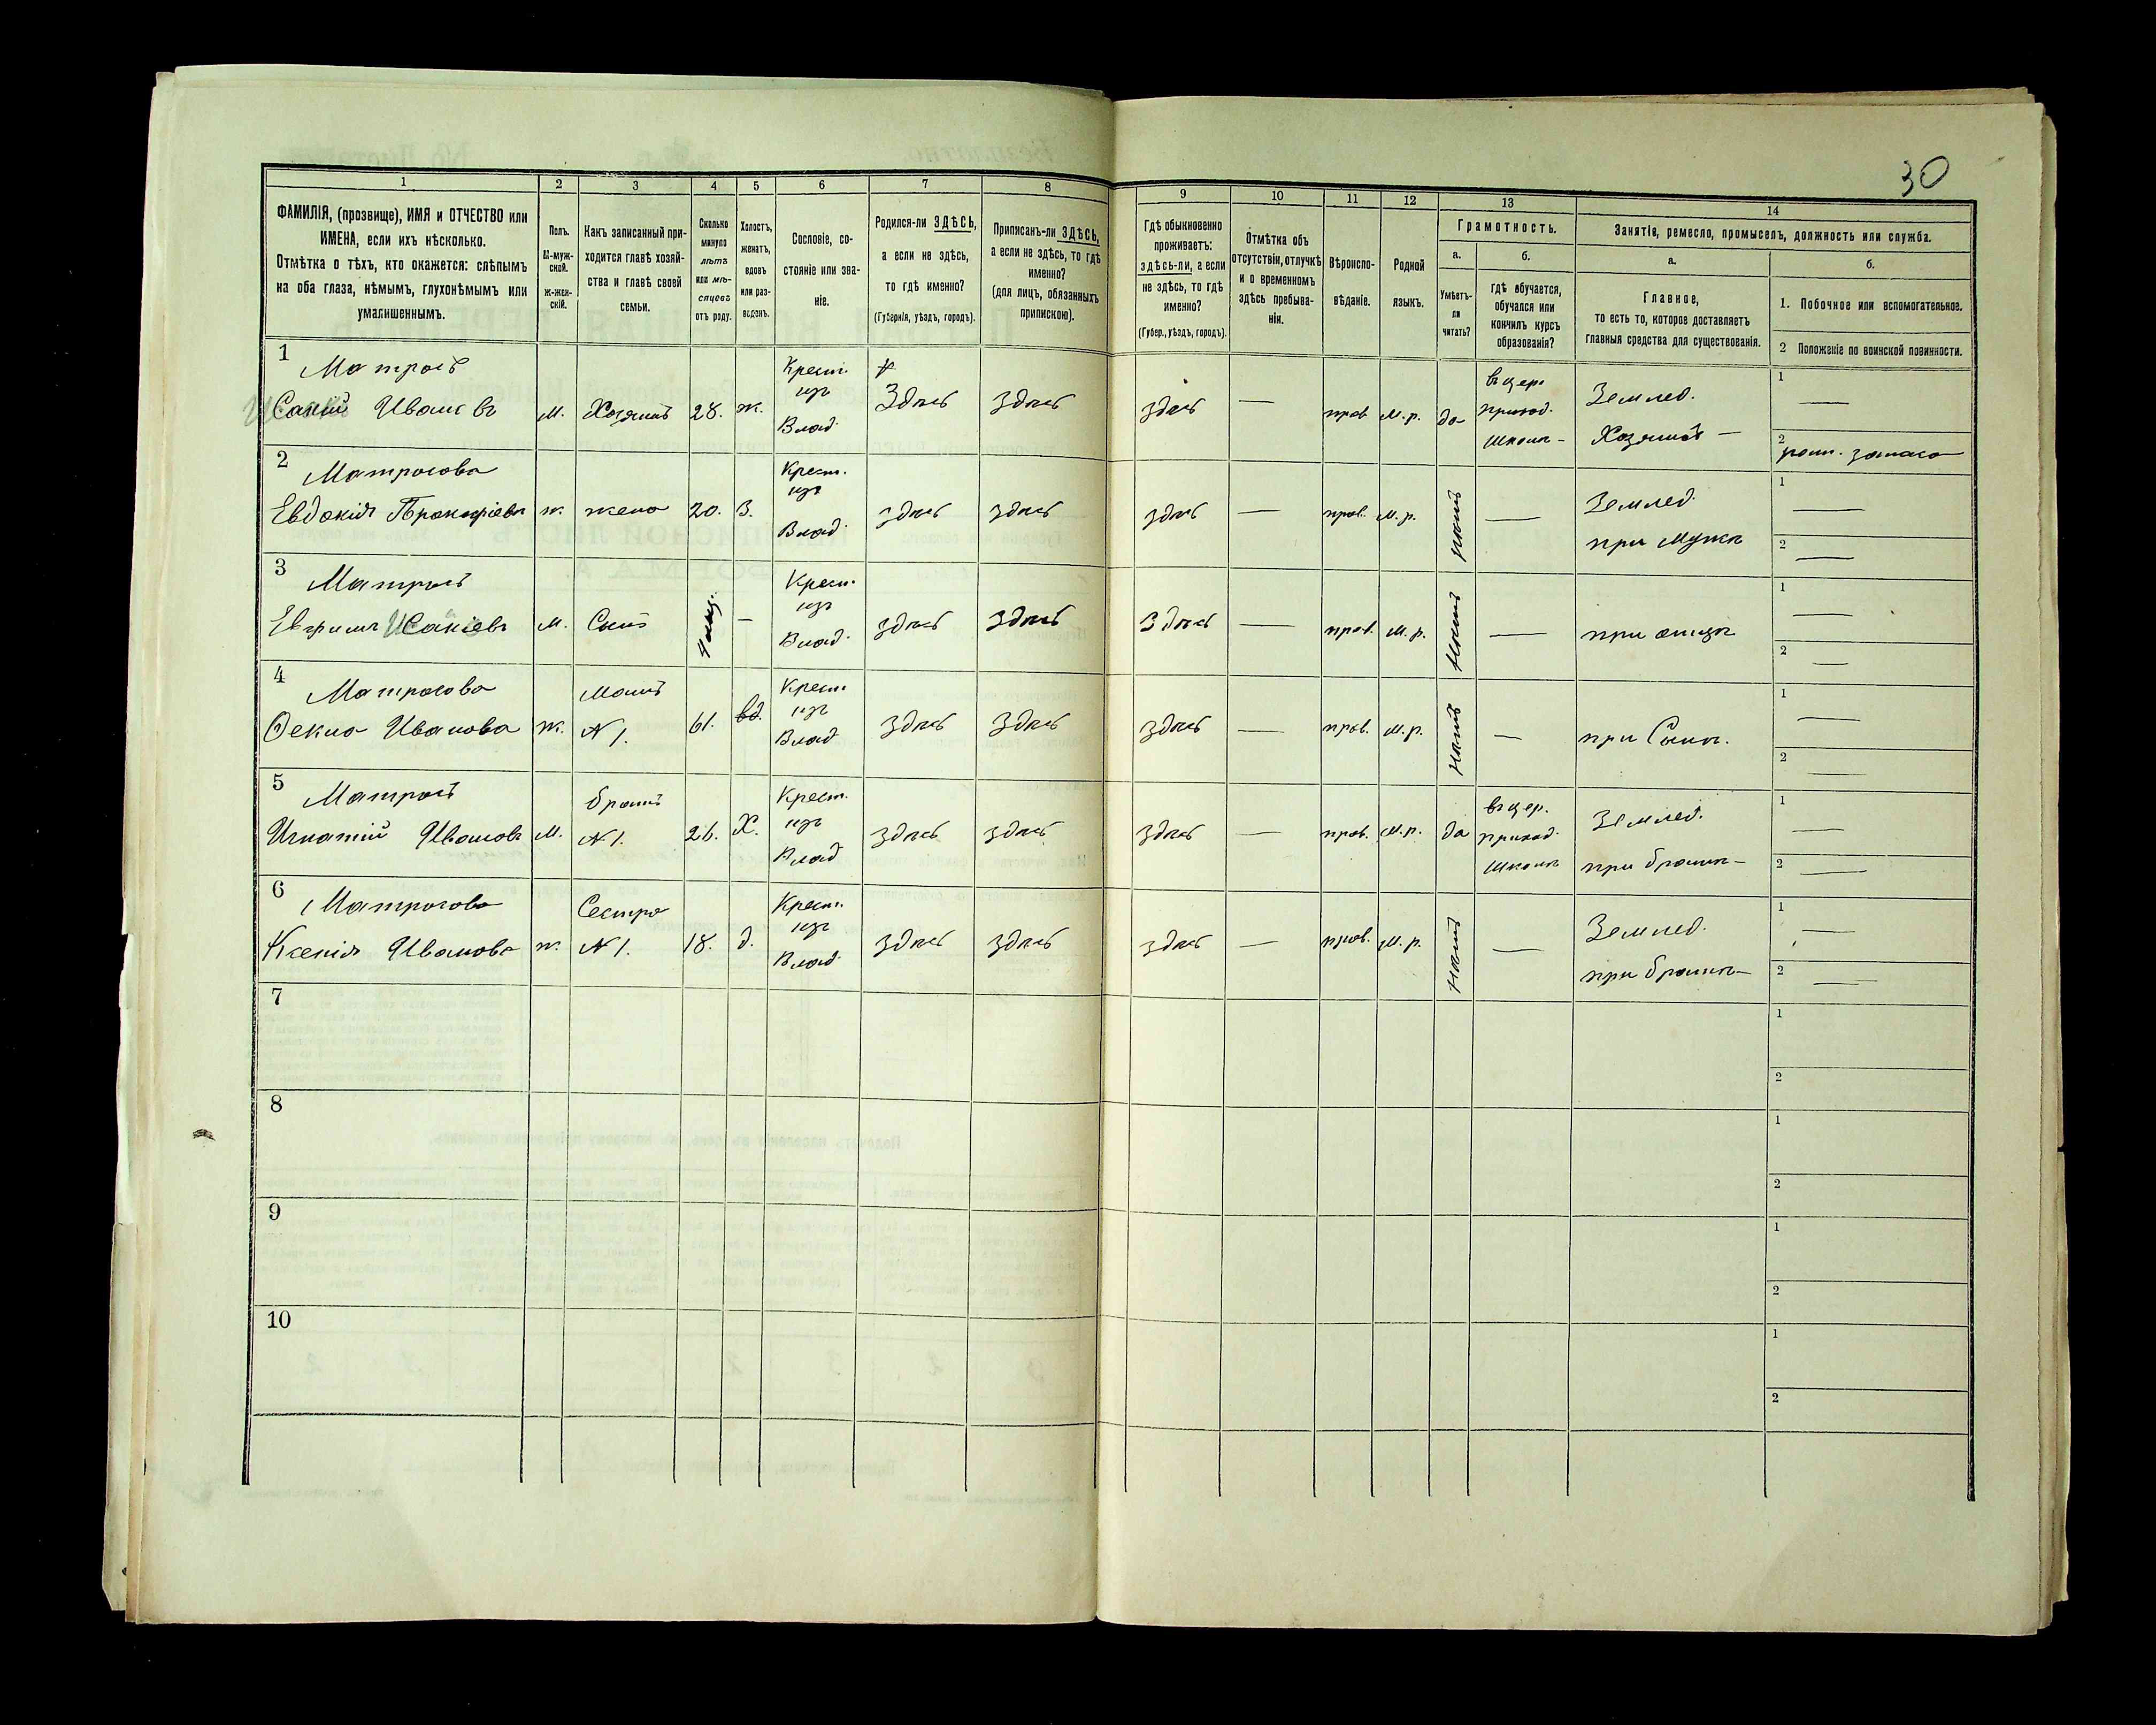 30
1 2 3 4 5 6 7 8 9 10 11 12 13 14
ФАМИЛІЯ, (прозвище), ИМЯ и ОТЧЕСТВО или
ИМЕНА, если ихъ нѣсколько.
Отмѣтка о тѣхъ, кто окажется: слѣпымъ
на оба глаза, нѣмымъ, глухонѣмымъ или
умалишеннымъ.
Полъ.
М-муж-
ской.
ж-жен-
скій.
Какъ записанный при-
ходится главѣ хозяй-
ства и главѣ своей
семьи.
Сколько
минуло
лѣтъ
или мѣ-
сяцевъ
отъ роду.
Холостъ,
женатъ,
вдовъ
или раз-
веденъ.
Сословіе, со-
стояніе или зва-
ніе.
Родился-ли ЗДѢСЬ,
а если не здѣсь,
то гдѣ именно?
(Губернія, уѣздъ, городъ).
Приписанъ-ли ЗДѢСЬ,
а если не здѣсь, то гдѣ
именно?
(для лицъ, обязанныхъ
припискою).
Гдѣ обыкновенно
проживаетъ:
здѣсь-ли, а если
не здѣсь, то гдѣ
именно?
(Губер., уѣздъ, городъ).
Отмѣтка объ
отсутствіи, отлучкѣ
и о временномъ
здѣсь пребыва-
ніи.
Вѣроиспо-
вѣданіе.
Родной
языкъ.
Грамотность.
а.
Умѣетъ-
ли
читать?
б.
гдѣ обучается,
обучался или
кончилъ курсъ
образованія?
Занятіе, ремесло, промыселъ, должность или служба.
а.
Главное,
то есть то, которое доставляетъ
главныя средства для существованія.
б.
1. Побочное или вспомогательное.
2 Положеніе по воинской повинности.
1 Матросъ
Сакій Ивановъ м. Хозяинъ 28. ж. Крест. изъ Влад. Здѣсь здѣсь здѣсь — прав. М.р. да въ цер. приход. школѣ Землед. Хозяинъ — 1 —
2 запаса
2 Матросова
Евдокія ж. жена 20. З. Крест. изъ Влад. здѣсь здѣсь здѣсь — прав. М.р. нѣтъ — Землед. при Мужѣ 1 —
2 —
3 Матросъ
Сакіевъ М. Сынъ — Крест. изъ Влад. здѣсь здѣсь здѣсь — прав. М.р. нѣтъ — при отцѣ 1 —
2 —
4 Матросова
Ѳекла Иванова ж. Мать N 1. 61. вд. Крест. изъ Влад. здѣсь здѣсь здѣсь — прав. М.р. нѣтъ — при Сынѣ. 1 —
2 —
5 Матросъ
Игнатій Ивановъ М. братъ N 1. 26. Х. Крест. изъ Влад. здѣсь здѣсь здѣсь — прав. М.р. да въ цер. приход. школѣ Землед. при братѣ — 1 —
2 —
6 Матросова
Ксенія Иванова ж. Сестра N 1. 18. д. Крест. изъ Влад. здѣсь здѣсь здѣсь — прав. М.р. нѣтъ — Землед. при братѣ — 1 —
2 —
7 1
2
8 1
2
9 1
2
10 1
2